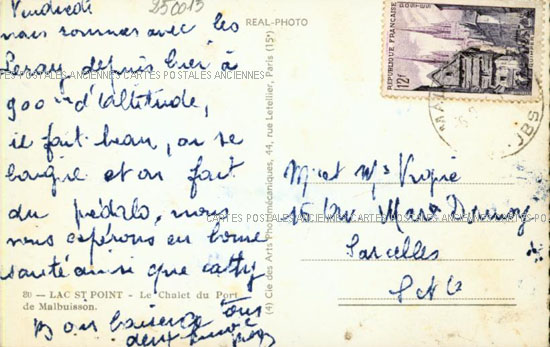 Vendredi
250013
nous sommes avec les
depuis hier à
900m d'altitude,
il fait beau, on se
baigne et on fait
du pédalo, nous
vous espérons en bonne
santé ainsi que Cathy
80 — LAC ST POINT - Le Chalet du Port
de Malbuisson.
Bons baisers
deux
REAL-PHOTO
(4) Cie des Arts Photomécaniques, 44, rue Letellier, Paris (15e)
CARTES POSTALES ANCIENNES CARTES POSTALES ANCIENNES
CARTES POSTALES ANCIENNES CARTES POSTALES ANCIENNES
POSTES
REPUBLIQUE FRANÇAISE
12F
Mr et
Sarcelles
S et O